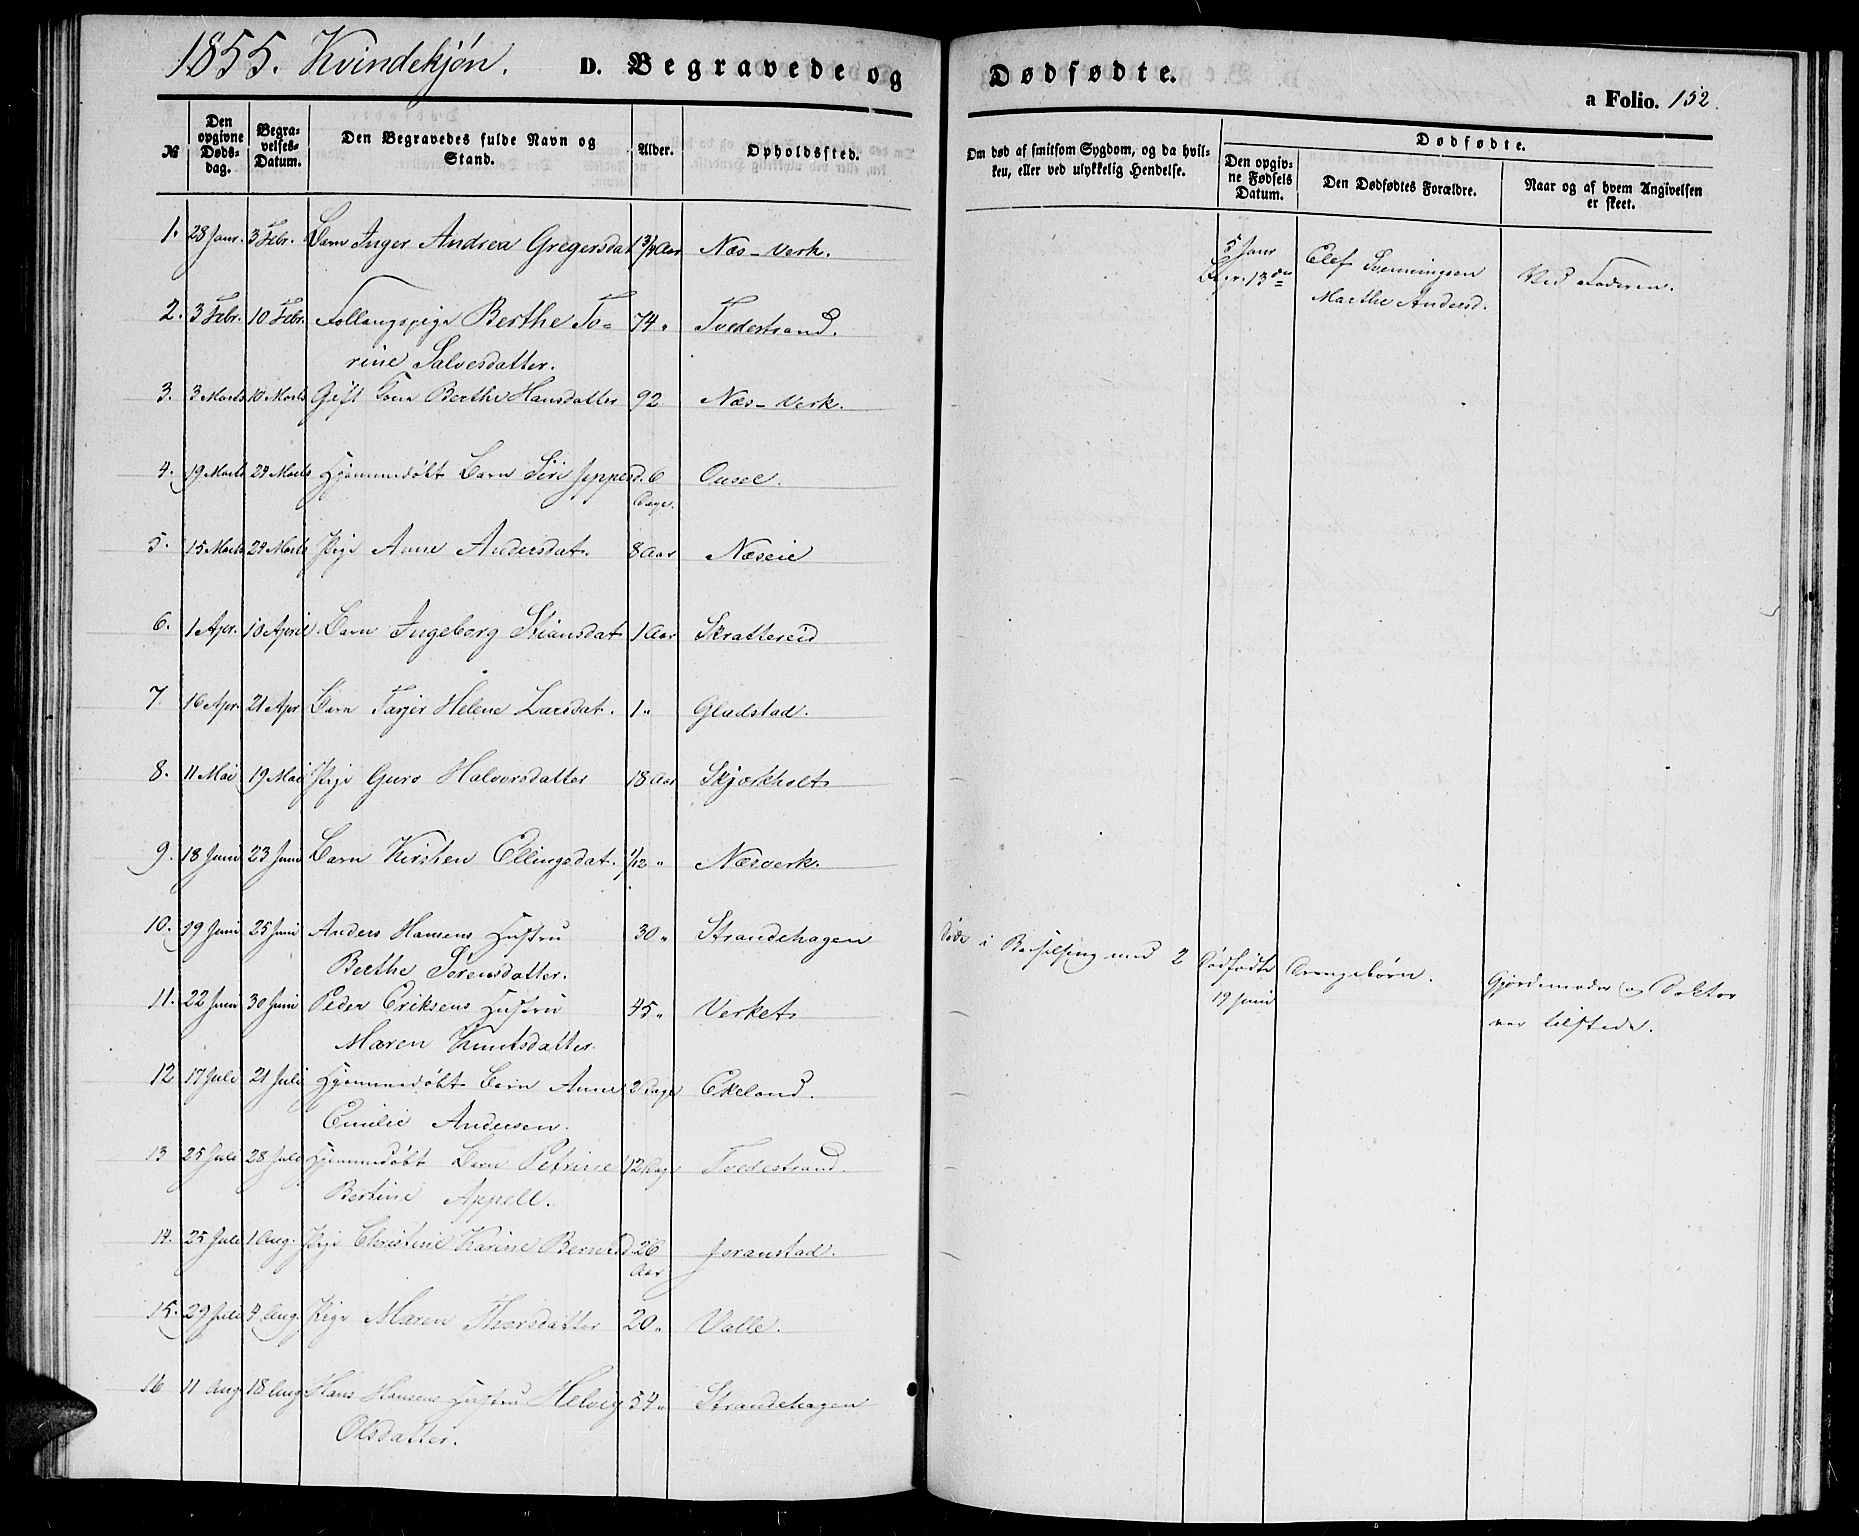 1855. Kvindekjön. D. Begravede og Dødfødte.
a Folio. 152.
No
Den opgivne Døds-dag.
Begra-velses-Datum.
Den Begravedes fulde Navn og Stand.
Alder.
Opholdssted.
Om død af smitsom Sygdom, og da hvil-ken, eller ved ulykkelig Hendelse.
Dødfødte.
Den opgiv-ne Fødsels Datum.
Den Dødfødtes Forældre.
Naar og af hvem Angivelsen er skeet.
1. 28 Janr. 3 Febr. Barn Inger Andrea Gregersdat 1 3/4 Aar Næs-Verk.
5 Janr Begr. 13de Olef Svenningsen Ved Faderen.
Marthe Andersd.
2. 3 Febr. 10 Febr. Follaugspige Berthe To- 74 " Tvedestrand.
rine Salvesdatter.
3. 3 Marts 10 Marts Gift Kone Berthe Hansdatter 92 Næs-Verk.
4. 19 Marts 24 Marts Hjemmedøbt Barn Siri Jeppesd. 6 Ousee.
Dage.
5. 15 Marts 24 Marts Pige Anne Andersdat. 8 Aar Næseie
6. 1 Apr. 10 April Barn Ingeborg Stiansdat 1 Aar Skrattereid
7. 16 Apr. 21 Apr Barn Tarjer Helene Larsdat. 1 " Gladstad.
8. 11 Mai 19 Mai Pige Guro Halvorsdatter 18 Aar Skjærkholt
9. 18 Juni 23 Juni Barn Kirsten Ellingsdat. 1/12 " Næsverk.
10. 19 Juni 25 Juni Anders Hansens Hustru 30 " Strandehagen
Berthe Sørensdatter.
Døde i Barselseng med 2 Dødfødte Drengebørn.
19 Juni
Gjordemoder og Doktor
var tilstede.
11. 22 Juni 30 Juni Peder Eriksens Hustru 45 " Verket
Maren Knutsdatter.
12 17 Juli 21 Juli Hjemmedøbt Barn Anne 2 Dage Ekeland.
Emilie Andersen.
13 25 Juli 28 Juli Hjemmedøbt Barn Petrine 12 Dage Tvedestrand.
Bertine Appell.
14. 25 Juli 1 Aug. Pige Christine Karine Berntsd 26 Joranstad.
Aar
15. 29 Juli 4 Aug. Pige Maren Thorsdatter 20 " Valle.
16 11 Aug 18 Aug Hans Hansens Hustru Helvig 54 " Strandehagen
Olsdatter.